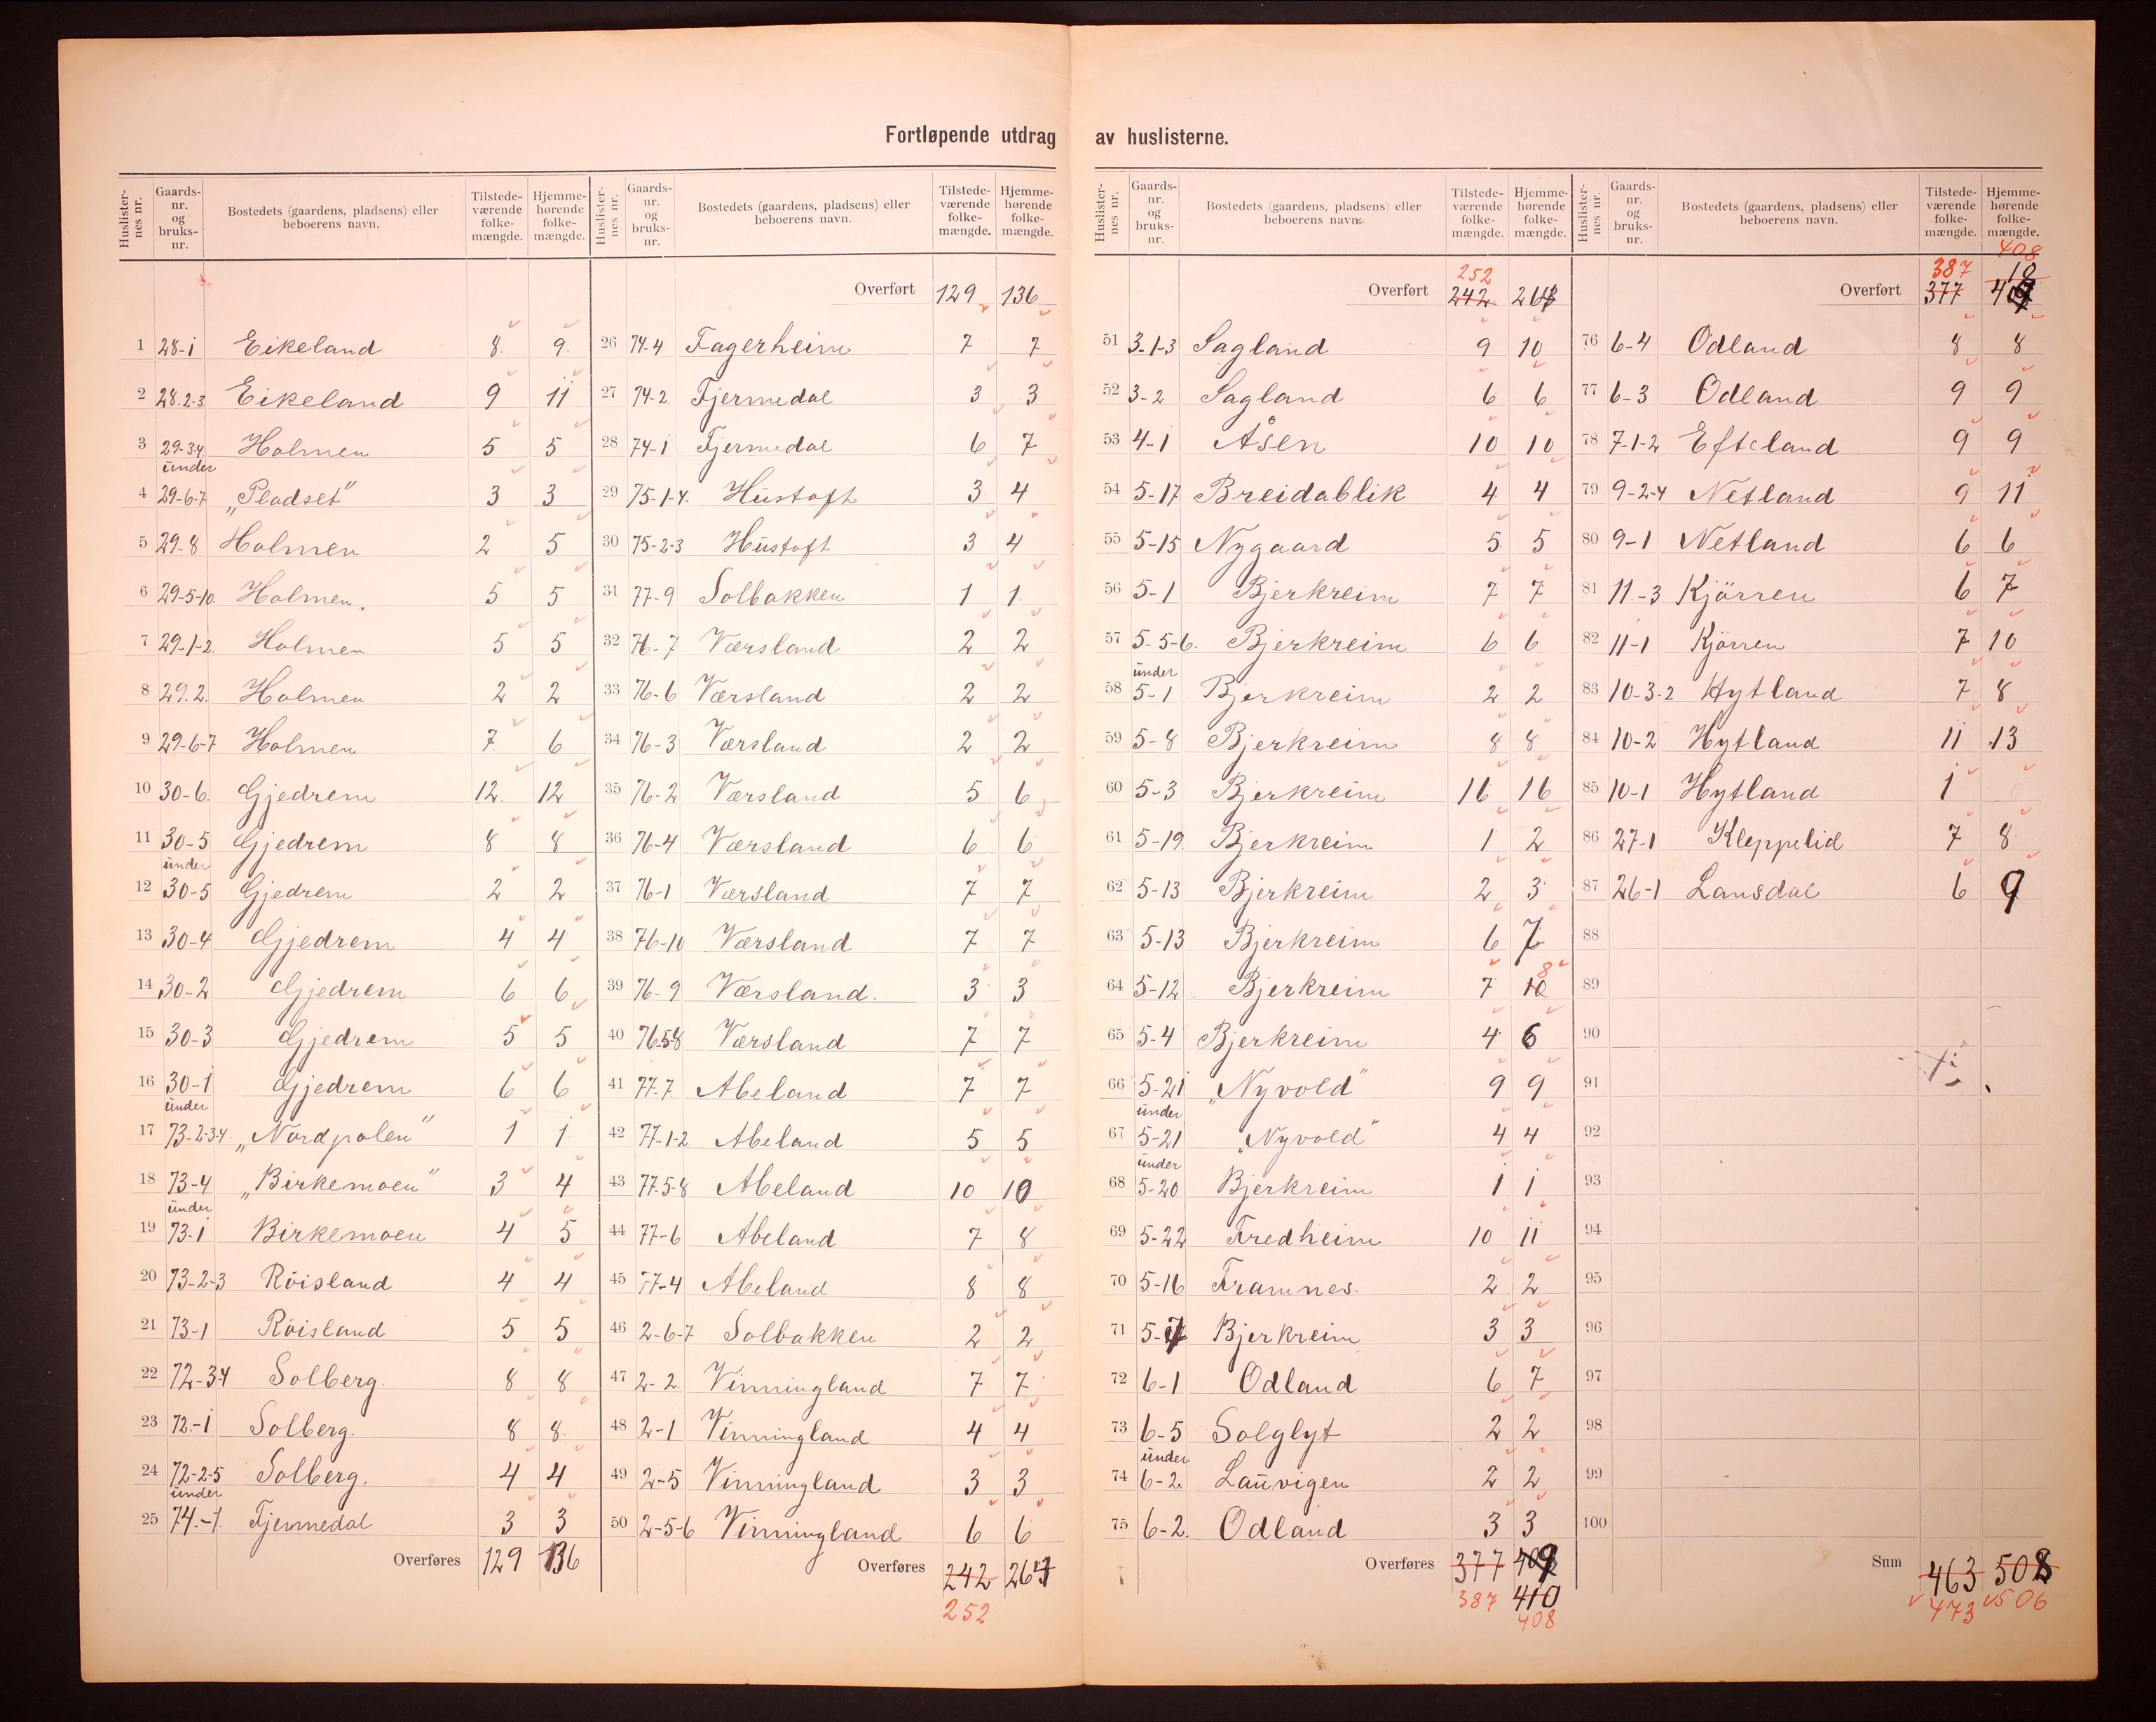 Fortløpende utdrag av huslisterne.
Huslister-nes nr. Gaards-nr. og bruks-nr. Bostedets (gaardens, pladsens) eller beboerens navn. Tilstede-værende folke-mængde. Hjemme-hørende folke-mængde.
1 28-1 Eikeland 8 9
2 28.2-3 Eikeland 9 11
3 29-3-4 Holmen 5 5
4 under 29-6-7 „Pladset" 3 3
5 29-8 Holmen 2 5
6 29-5-10. Holmen. 5 5
7 29-1-2. Holmen 5 5
8 29.2. Holmen 2 2
9 29-6-7 Holmen 7 6
10 30-6 Gjedrem 12 12
11 30-5 Gjedrem 8 8
12 under 30-5 Gjedrem 2 2
13 30-4 Gjedrem 4 4
14 30-2 Gjedrem 6 6
15 30-3 Gjedrem 5 5
16 30-1 Gjedrem 6 6
17 under 73-2-3-4 „Nordpolen" 1 1
18 73-4 „Birkemoen" 3 4
19 under 73-1 Birkemoen 4 5
20 73-2-3 Röisland 4 4
21 73-1 Röisland 5 5
22 72-3-4 Solberg. 8 8
23 72-1 Solberg. 8 8.
24 72-2-5 Solberg. 4 4
25 under 74.-1. Fjermedal 3 3
Overføres 129 136
Huslister-nes nr. Gaards-nr. og bruks-nr. Bostedets (gaardens, pladsens) eller beboerens navn. Tilstede-værende folke-mængde. Hjemme-hørende folke-mængde.
Overført 129 136
26 74-4 Fagerheim 7 7
27 74-2 Fjermedal 3 3
28 74-1 Fjermedal 6 7
29 75-1-4. Hüstoft 3 4
30 75-2-3 Hüstoft 3 4
31 77-9 Solbakken 1 1
32 76-7 Værsland 2 2
33 76-6 Værsland 2 2
34 76-3 Værsland 2 2
35 76-2 Værsland 5 6
36 76-4 Værsland 6 6
37 76-1 Værsland 7 7
38 76-10 Værsland 7 7
39 76-9 Værsland. 3 3
40 76-5-8 Værsland 7 7
41 77-7 Abeland 7 7
42 77-1-2 Abeland 5 5
43 77-5-8 Abeland 10 10
44 77-6 Abeland 7 8
45 77-4 Abeland 8 8
46 2-6-7 Solbakken 2 2
47 2-2 Vinningland 7 7
48 2-1 Vinningland 4 4
49 2-5 Vinningland 3 3
50 2-5-6 Vinningland 6 6
Overføres 242
252
Huslister-nes nr. Gaards-nr. og bruks-nr. Bostedets (gaardens, pladsens) eller beboerens navn. Tilstede-værende folke-mængde. Hjemme-hørende folke-mængde.
252
Overført 242
51 3-1-3 Sagland 9 10
52 3-2 Sagland 6 6
53 4-1 Åsen 10 10
54 5-17 Breidablik 4 4
55 5-15 Nygaard 5 5
56 5-1 Bjerkreim 7 7
57 5-5-6. Bjerkreim 6 6
58 under 5-1 Bjerkreim 2 2
59 5-8 Bjerkreim 8 8
60 5-3 Bjerkreim 16 16
61 5-19 Bjerkreim 1 2
62 5-13 Bjerkreim 2 3
63 5-13 Bjerkreim 6 7
64 5-12 Bjerkreim 7 10 8
65 5-4 Bjerkreim 4 6
66 5-21 „Nyvold" 9 9
67 under 5-21 „Nyvold" 4 4
68 under 5-20 Bjerkreim 1 1
69 5-22 Fredheim 10 11
70 5-16 Framnes. 2 2
71 5-7 Bjerkreim 3 3
72 6-1 Odland 6 7
73 6-5 Solglyt 2 2
74 under 6-2. Laüvigen 2 2
75 6-2. Odland 3 3
Overføres 377
387 410
408
Huslister-nes nr. Gaards-nr. og bruks-nr. Bostedets (gaardens, pladsens) eller beboerens navn. Tilstede-værende folke-mængde. Hjemme-hørende folke-mængde.
408
387 10
Overført 377
76 6-4 Odland 8 8
77 6-3 Odland 9 9
78 7-1-2 Efteland 9 9
79 9-2-4 Netland 9 11
80 9-1 Netland 6 6
81 11.-3 Kjörren 6 7
82 11-1 Kjörren 7 10
83 10-3-2 Hytland 7 8
84 10-2 Hytland 11 13
85 10-1 Hytland 1
86 27-1 Kleppelid 7 8
87 26-1 Lausdal 6 9
88
89
90
91
92
93
94
95
96
97
98
99
100
Sum 463 508
473 506